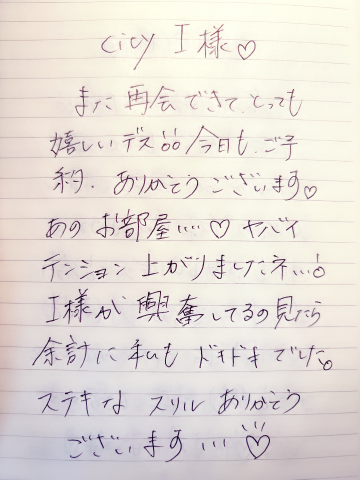 city I様♡
また再会できて、とっても
嬉しいデス!!今日も、ご予
約、ありがとうございます♡
あの お部屋….♡ ヤバイ
テンション 上がりましたネ…!
I様が 興奮してるの見たら
余計に 私も ドキドキ でした。
ステキな スリル ありがとう
ございます …♡